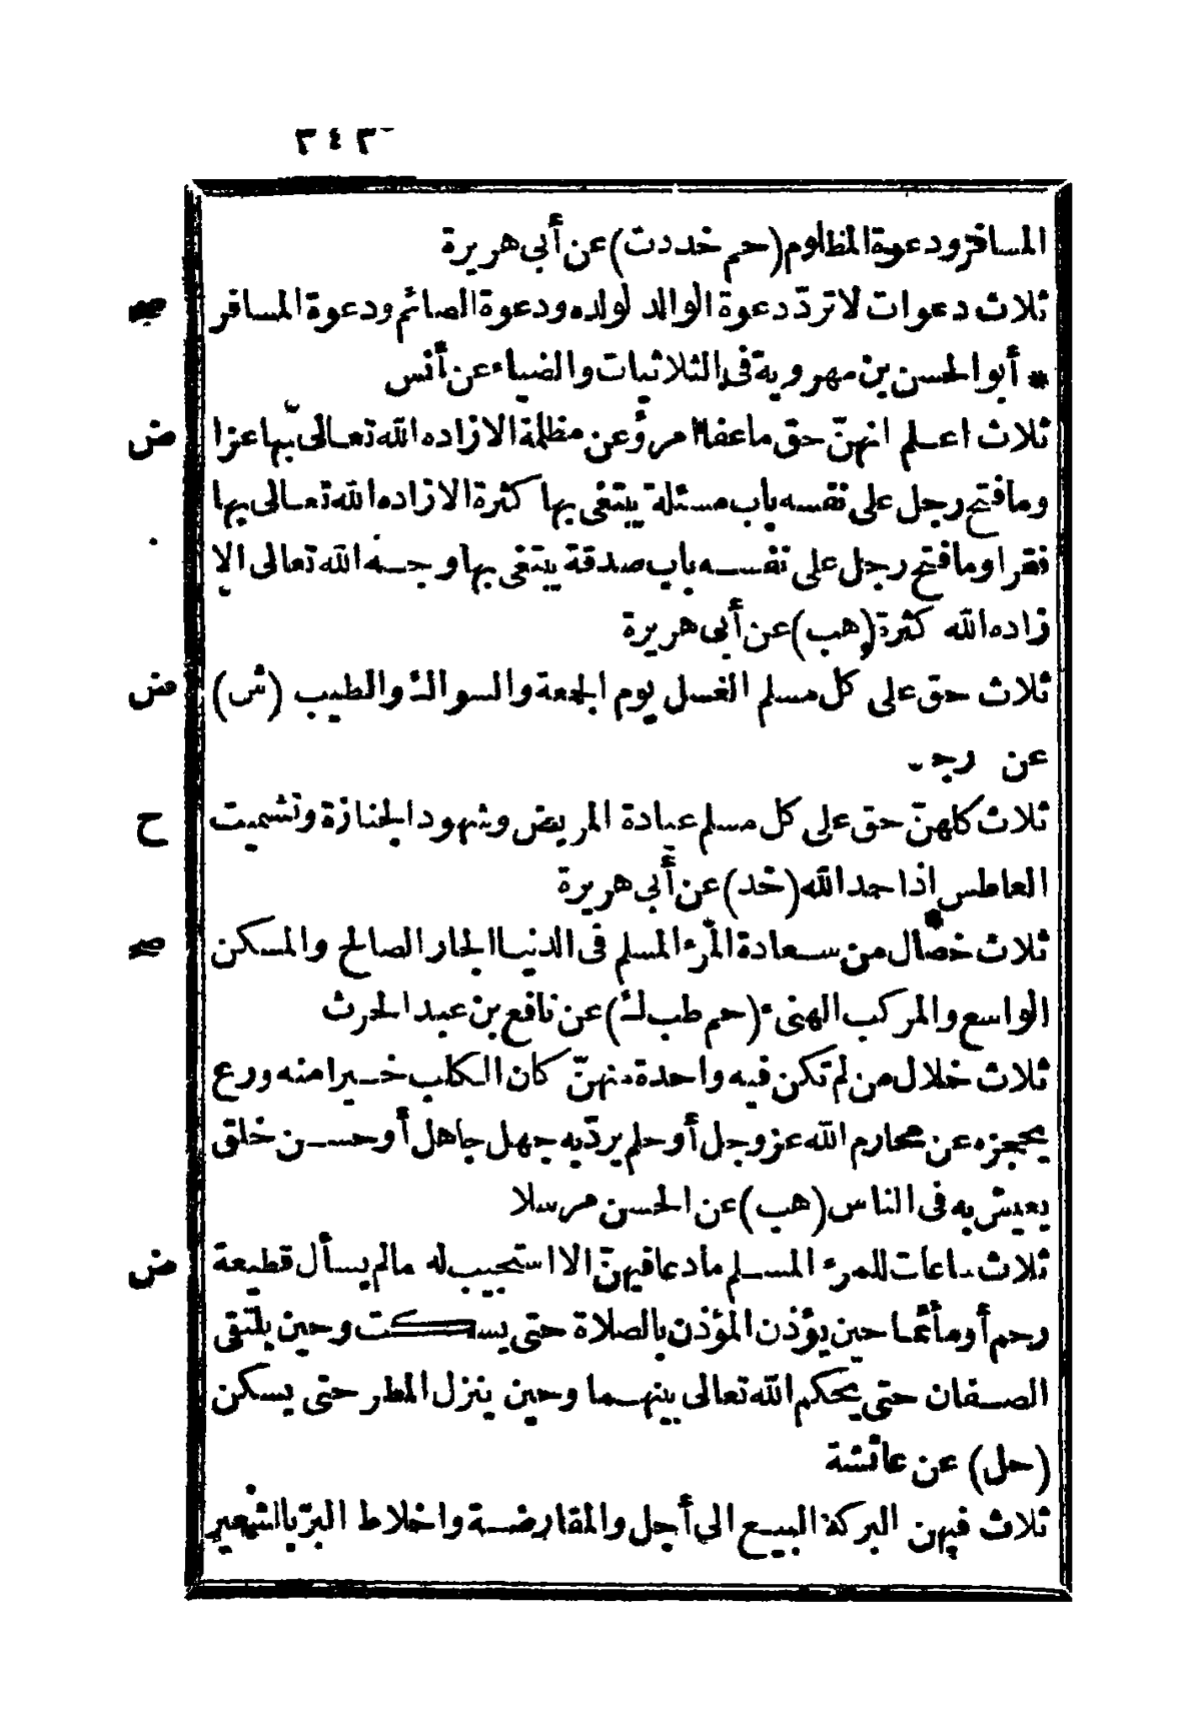 ٣٤٣
المسافر ودعوة المظلوم (حم خد دت) عن أبى هريرة
ثلاث دعوات لا تردّ دعوة الوالد لولده ودعوة الصائم ودعوة المسافر
صح
* أبو الحسن بن مهرويه فى الثلاثيات والضياء عن أنس
ثلاث اعلم انهنّ حق ما عفا امرؤ عن مظلمة الا زاده الله تعالى بها عزا
ض
وما فتح رجل على نفسه باب مسئلة يبتغى بها كثرة الا زاده الله تعالى بها
فقرا وما فتح رجل على نفسه باب صدقة يبتغى بها وجه الله تعالى الا
زاده الله كثرة (هب) عن أبى هريرة
ثلاث حق على كل مسلم الغسل يوم الجمعة والسواك والطيب (ش)
ض
عن
ثلاث كلهنّ حق على كل مسلم عيادة المريض وشهود الجنازة وتشميت
ح
العاطس اذا حمد الله (خد) عن أبى هريرة
ثلاث خصال من سعادة المرء المسلم فى الدنيا الجار الصالح والمسكن
صح
الواسع والمركب الهنىء (حم طب ك) عن نافع بن عبد الحرث
ثلاث خلال من لم تكن فيه واحدة منهنّ كان الكلب خيرا منه ورع
يحجزه عن محارم الله عز وجل أو حلم يردّ به جهل جاهل أو حسن خلق
يعيش به فى الناس (هب) عن الحسن مرسلا
ثلاث ساعات للمرء المسلم ما دعا فيهنّ الا استجيب له ما لم يسأل قطيعة
ض
رحم أو مأثما حين يؤذن المؤذن بالصلاة حتى يسكت وحين يلتقى
الصفان حتى يحكم الله تعالى بينهما وحين ينزل المطر حتى يسكن
(حل) عن عائشة
ثلاث فيهن البركة البيع الى أجل والمقارضة واخلاط البرّ بالشعير